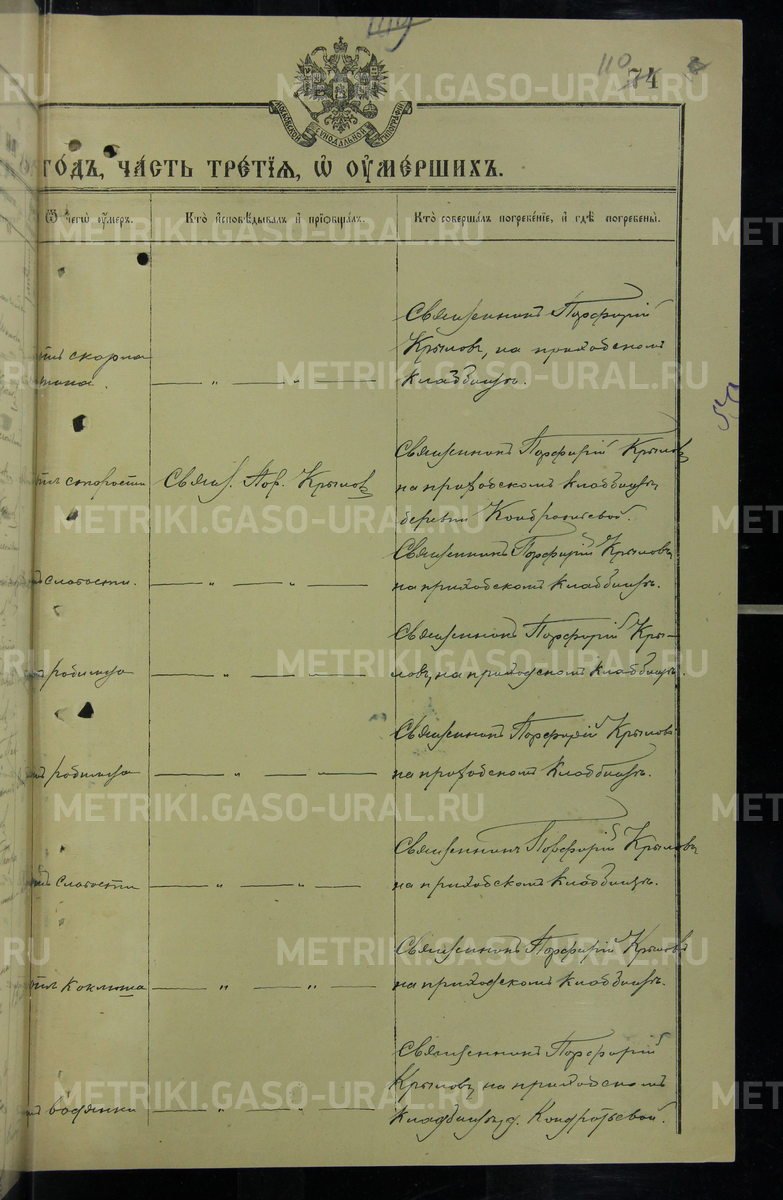 110 74
МОСКОВСКОЙ СѴНОДАЛЬНОЙ ТИПОГРАФІИ
ГОДЪ, ЧАСТЬ ТРЕТІЯ, Ѡ ОУМЕРШИХЪ.
Ѿ чегѡ оумеръ. Кто исповѣдывалъ и пріобщалъ. Кто совершалъ погребеніе, и гдѣ погребены.
Священникъ Порфирій
Крыловъ, на приходскомъ
скарла
тина. — „ — „ — кладбищѣ.
Священникъ Порфирій Крыловъ
старости Свящ. Пор. Крыловъ на приходскомъ кладбищѣ
деревни Кондратьевой.
Священникъ Порфирій Крыловъ,
слабости. — „ — „ — на приходскомъ кладбищѣ.
Священникъ Порфирій Кры-
родимца — „ — „ — ловъ, на приходскомъ кладбищѣ.
Священникъ Порфирій Крыловъ
родимца — „ — „ — на приходскомъ кладбищѣ.
Священникъ Порфирій Крыловъ
слабости — „ — „ — на приходскомъ кладбищѣ.
Священникъ Порфирій Крыловъ
коклюша — „ — „ — на приходскомъ кладбищѣ.
Священникъ Порфирій
Крыловъ, на приходскомъ
водянки — „ — „ — кладбищѣ д. Кондратьевой.
METRIKI.GASO-URAL.RU